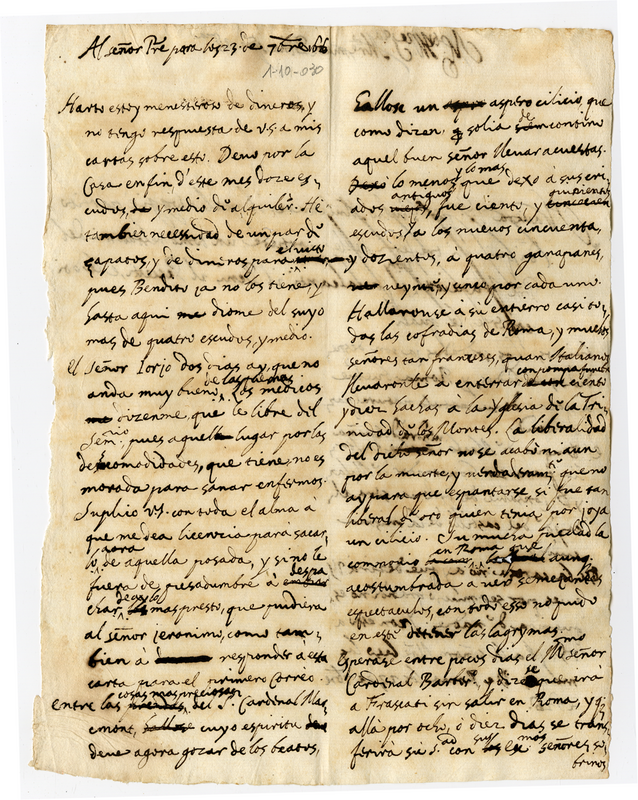 Al señor Pre para los 23. de 7bre 166
1-10-030
Harto estoy menesteroso de dineros, y
no tengo respuesta de vs. a mis
cartas sobre esto. Devo por la
Casa en fin d'este mes doze es,
cudos, y medio de alquiler. Hé
tambien necessidad de un par de
çapatos, y de dineros para el vivir
pues Bendito ja no los tiene, y
hasta aqui me diome del suyo
mas de quatro escudos, y medio.
El señor Jorjo dos dias ay, que no
anda muy bueno de las piernas, los medicos
me dizenme, que le libre del
Semio. pues aquel lugar por las
descomodidades, que tiene, no es
morada para sanar enfermos.
Suplico vs. con toda el alma à
que me dea licencia para sacar,
lo aora de aquella posada, y si no le
fuera de pesadumbre à despa
char, mas presto, que pudiera
al señor jeronimo, como tam,
bien à responder à esta
carta para el primero correo.
Entre las cosas mas preciosas del S. Cardenal Mar,
emont, cuyo espiritu
deve agora gozar de los beatos,
Hallose un aspero cilicio, que
como dizen solia de contino
aquel buen señor llevar acuestas.
lo menos y lo mas que dexò a sus cri,
ados antiguos, fue ciento, y quinientos
escudos, a los nuevos cincuenta,
y dozientos, à quatro ganapanes,
veynte, y sinco por cada uno.
Hallaronse à su entierro casi to,
das las cofradias de Roma, y muchos
señores tan franceses, quan Italianos
llevaronle a enterrar con pompa funebre ciento
y diez hachas à la Yglesia de la Tri,
nidad de los Montes. La liberalidad
del dicho señor no se acabò aun
por la muerte, y que no
ay para que espantarse, si fue tan
liberal de oro quien tenia por joya
un cilicio. Tu mucha
en Roma que aunq.
acostumbrada a ver semejantes
espectaculos, con todo esso no pudo
en este detener las lagrymas.
Esperase entre pocos dias el mo señor
Cardenal Barber. y dizese que irà
a Frascati sin salir en Roma, y q.
allà por ocho, ò diez dias se trans
ferirà su S.ad con sus ex.mos señores so,
brinos